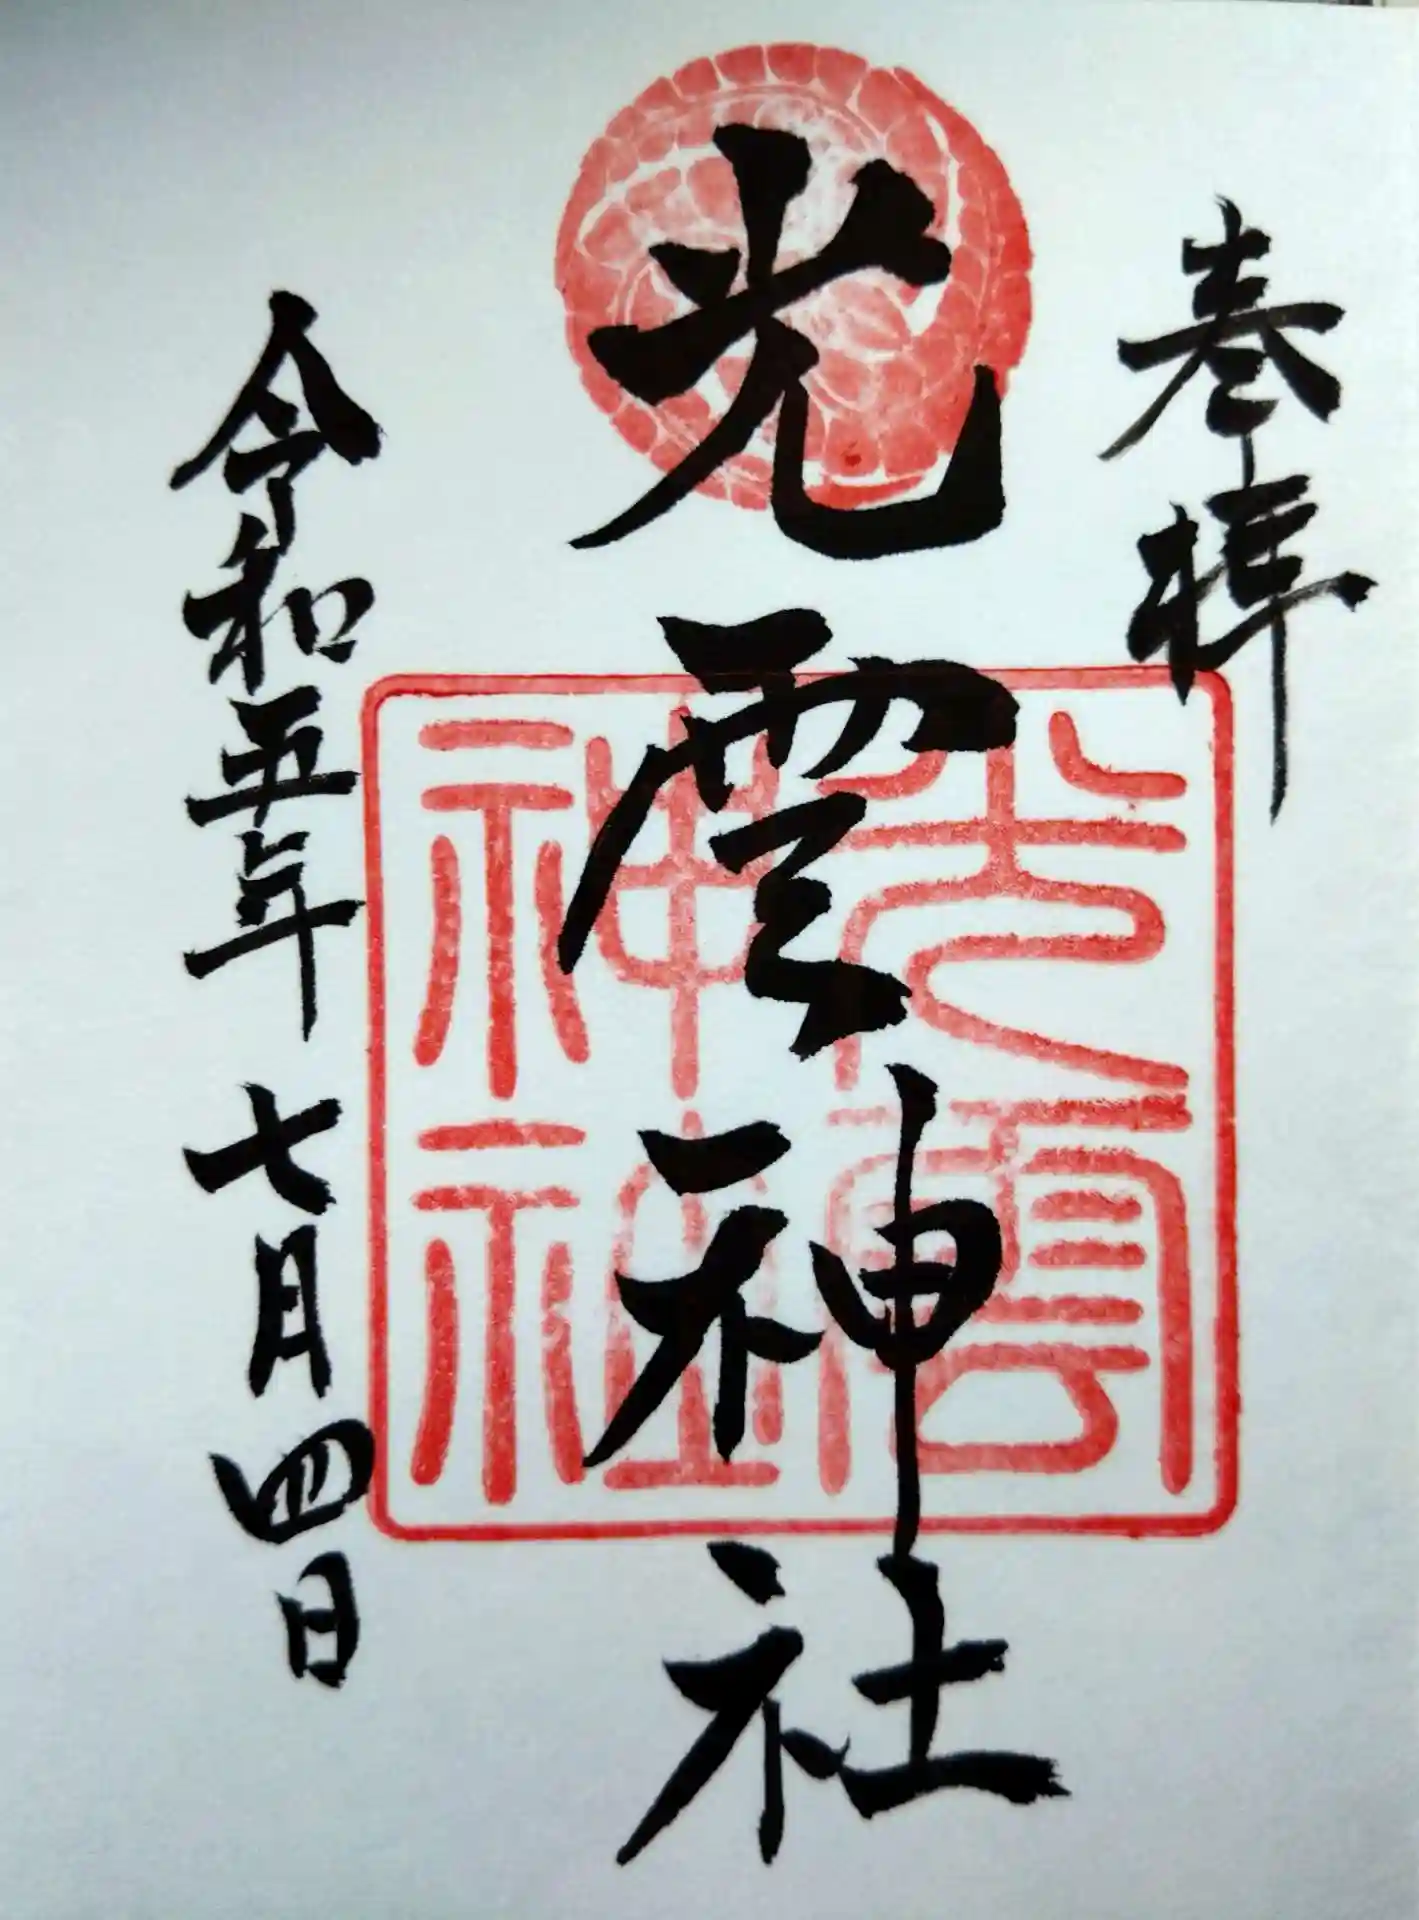 奉拝
光雲神社
光雲
神社
令和五年 七月四日